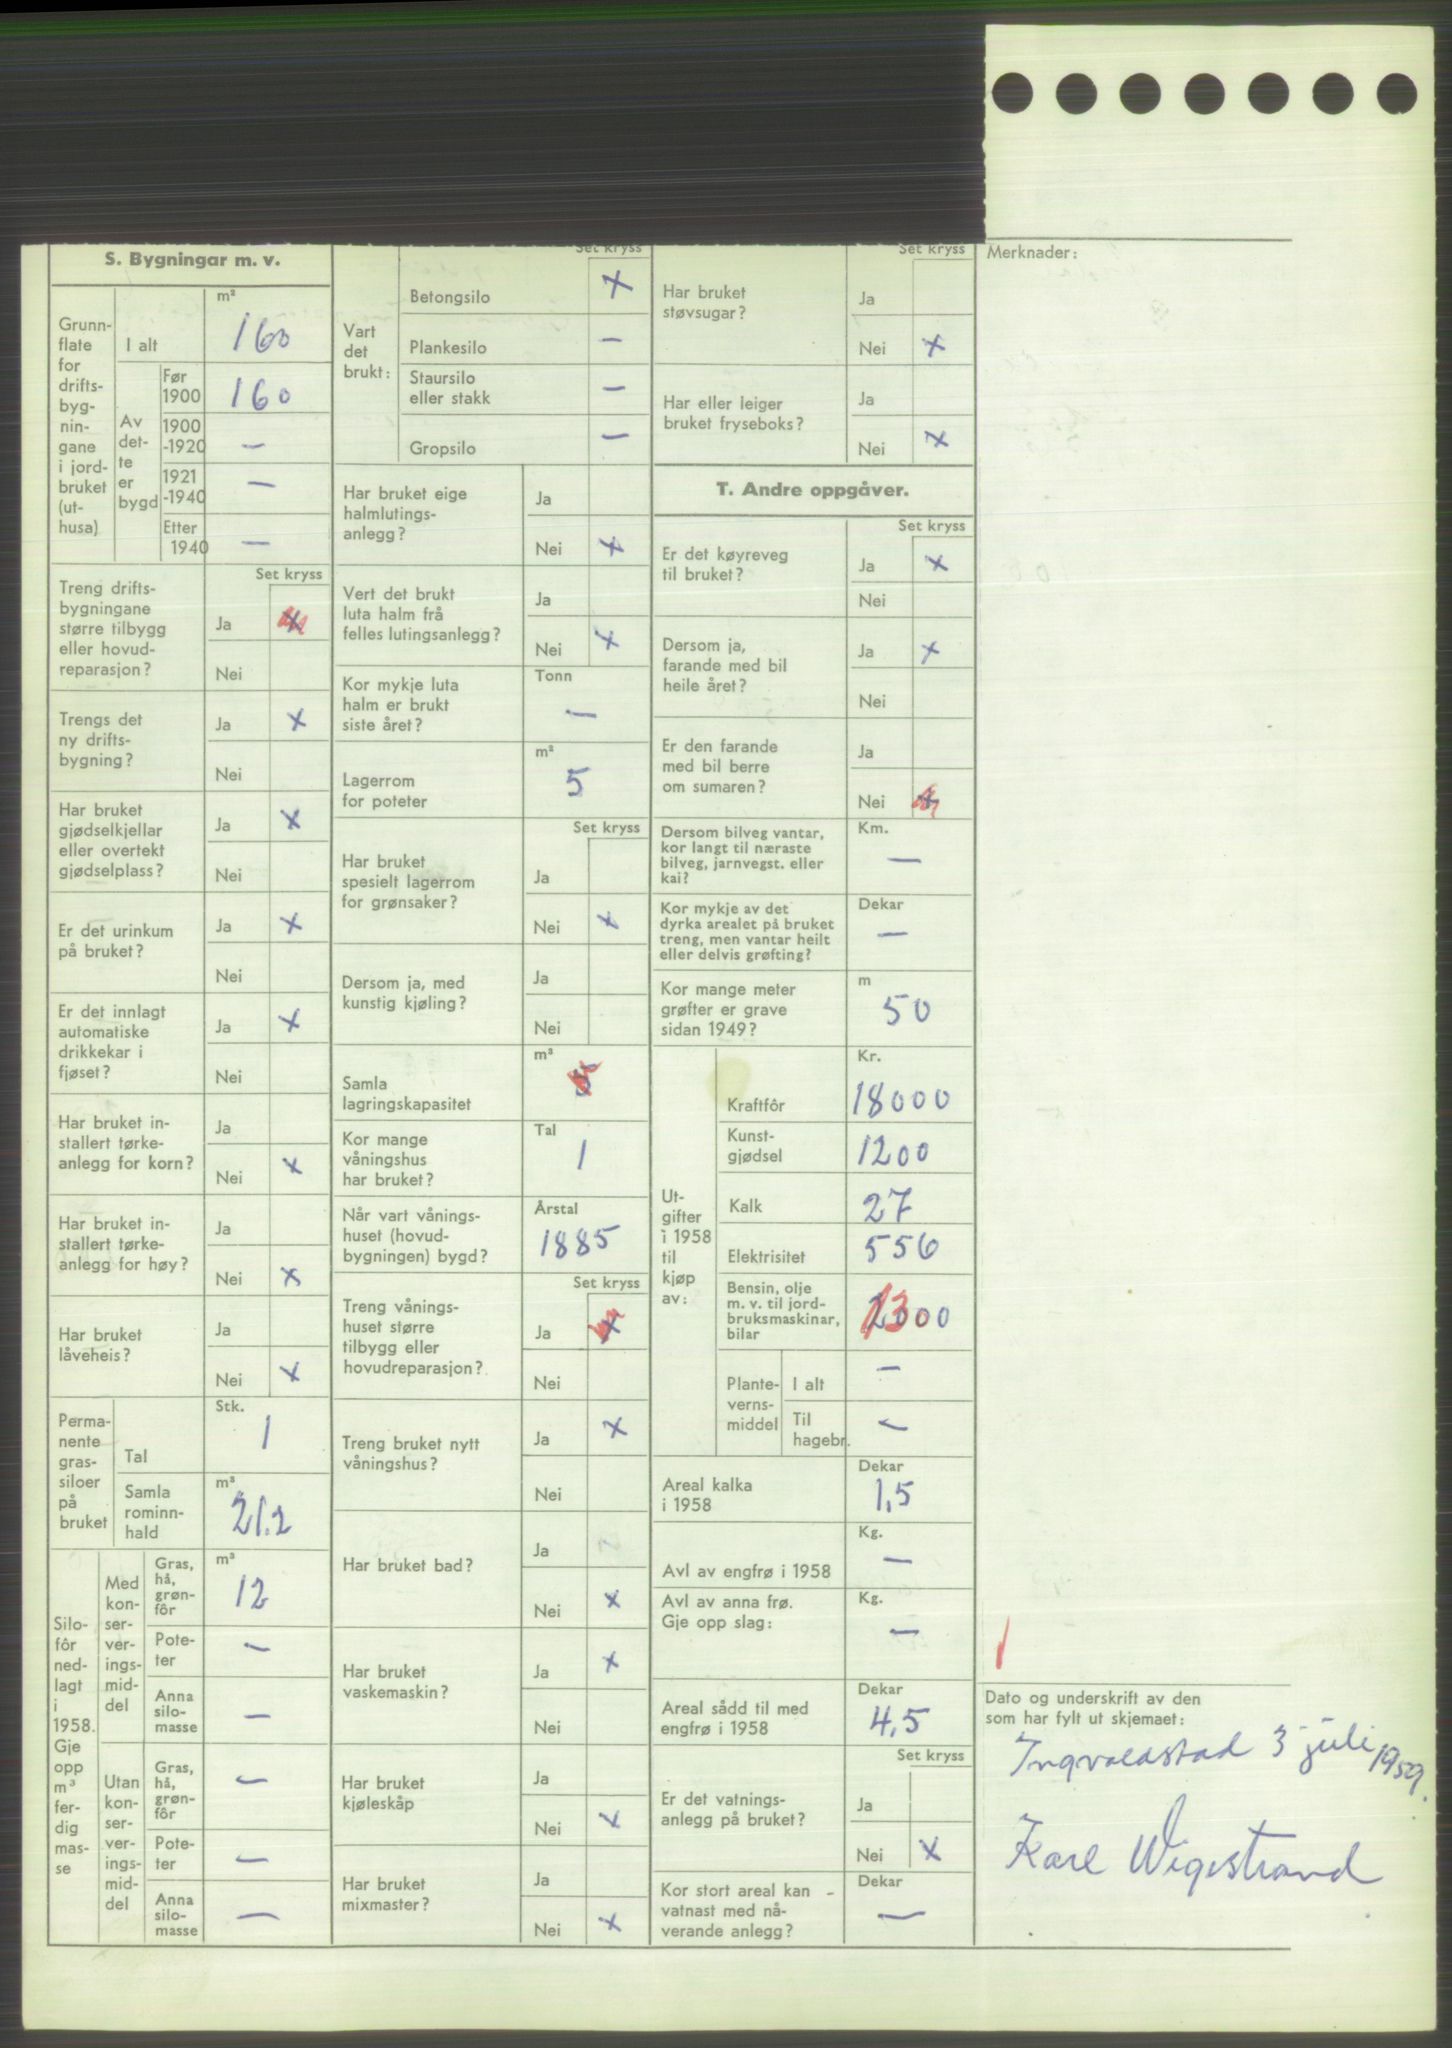 S. Bygningar m. v.
m²
Grunn-
flate
for
drifts-
byg-
nin-
gane
i jord-
bruket
(ut-
husa)
I alt
160
Av
det-
te
er
bygd
Før
1900
160
1900
-1920
—
1921
-1940
—
Etter
1940
—
Set kryss
Treng drifts-
bygningane
større tilbygg
eller hovud-
reparasjon?
Ja x
Nei
Trengs det
ny drifts-
bygning?
Ja x
Nei
Har bruket
gjødselkjellar
eller overtekt
gjødselplass?
Ja x
Nei
Er det urinkum
på bruket?
Ja x
Nei
Er det innlagt
automatiske
drikkekar i
fjøset?
Ja x
Nei
Har bruket in-
stallert tørke-
anlegg for korn?
Ja
Nei x
Har bruket in-
stallert tørke-
anlegg for høy?
Ja
Nei x
Har bruket
låveheis?
Ja
Nei x
Perma-
nente
gras-
siloer
på
bruket
Stk.
Tal
1
Samla
rominn-
hald
m³
21.2
Silo-
fôr
ned-
lagt
i
1958.
Gje
opp
m³
fer-
dig
mas-
se
Med
kon-
ser-
ver-
ings-
mid-
del
Gras,
hå,
grøn-
fôr
m³
12
Pote-
ter
—
Anna
silo-
masse
—
Utan
kon-
ser-
ver-
ings-
mid-
del
Gras,
hå,
grøn-
fôr
—
Pote-
ter
—
Anna
silo-
masse
—
Set kryss
Vart
det
brukt:
Betongsilo x
Plankesilo —
Staursilo
eller stakk —
Gropsilo —
Har bruket eige
halmlutings-
anlegg?
Ja
Nei x
Vert det brukt
luta halm frå
felles lutingsanlegg?
Ja
Nei x
Kor mykje luta
halm er brukt
siste året?
Tonn
—
Lagerrom
for poteter
m²
5
Set kryss
Har bruket
spesielt lagerrom
for grønsaker?
Ja
Nei x
Dersom ja, med
kunstig kjøling?
Ja
Nei
Samla
lagringskapasitet
m³
5
Kor mange
våningshus
har bruket?
Tal
1
Når vart vånings-
huset (hovud-
bygningen) bygd?
Årstal
1885
Set kryss
Treng vånings-
huset større
tilbygg eller
hovudreparasjon?
Ja x
Nei
Treng bruket nytt
våningshus?
Ja x
Nei
Har bruket bad?
Ja
Nei x
Har bruket
vaskemaskin?
Ja x
Nei
Har bruket
kjøleskåp
Ja
Nei x
Har bruket
mixmaster?
Ja
Nei x
Set kryss
Har bruket
støvsugar?
Ja
Nei x
Har eller leiger
bruket fryseboks?
Ja
Nei x
T. Andre oppgåver.
Set kryss
Er det køyreveg
til bruket?
Ja x
Nei
Dersom ja,
farande med bil
heile året?
Ja x
Nei
Er den farande
med bil berre
om sumaren?
Ja
Nei x
Dersom bilveg vantar,
kor langt til næraste
bilveg, jarnvegst. eller
kai?
Km.
—
Kor mykje av det
dyrka arealet på bruket
treng, men vantar heilt
eller delvis grøfting?
Dekar
—
Kor mange meter
grøfter er grave
sidan 1949?
m
50
Ut-
gifter
i 1958
til
kjøp
av:
Kr.
Kraftfôr
18000
Kunst-
gjødsel
1200
Kalk
27
Elektrisitet
556
Bensin, olje
m. v. til jord-
bruksmaskinar,
bilar
2000
13
Plante-
verns-
middel
I alt
—
Til
hagebr.
—
Areal kalka
i 1958
Dekar
1,5
Avl av engfrø i 1958
Kg.
—
Avl av anna frø.
Gje opp slag:
Kg.
—
Areal sådd til med
engfrø i 1958
Dekar
4,5
Set kryss
Er det vatnings-
anlegg på bruket?
Ja
Nei x
Kor stort areal kan
vatnast med nå-
verande anlegg?
Dekar
—
Merknader:
1
Dato og underskrift av den
som har fylt ut skjemaet:
Ingvaldstad 3 juli 1959.
Karl Wigestrand